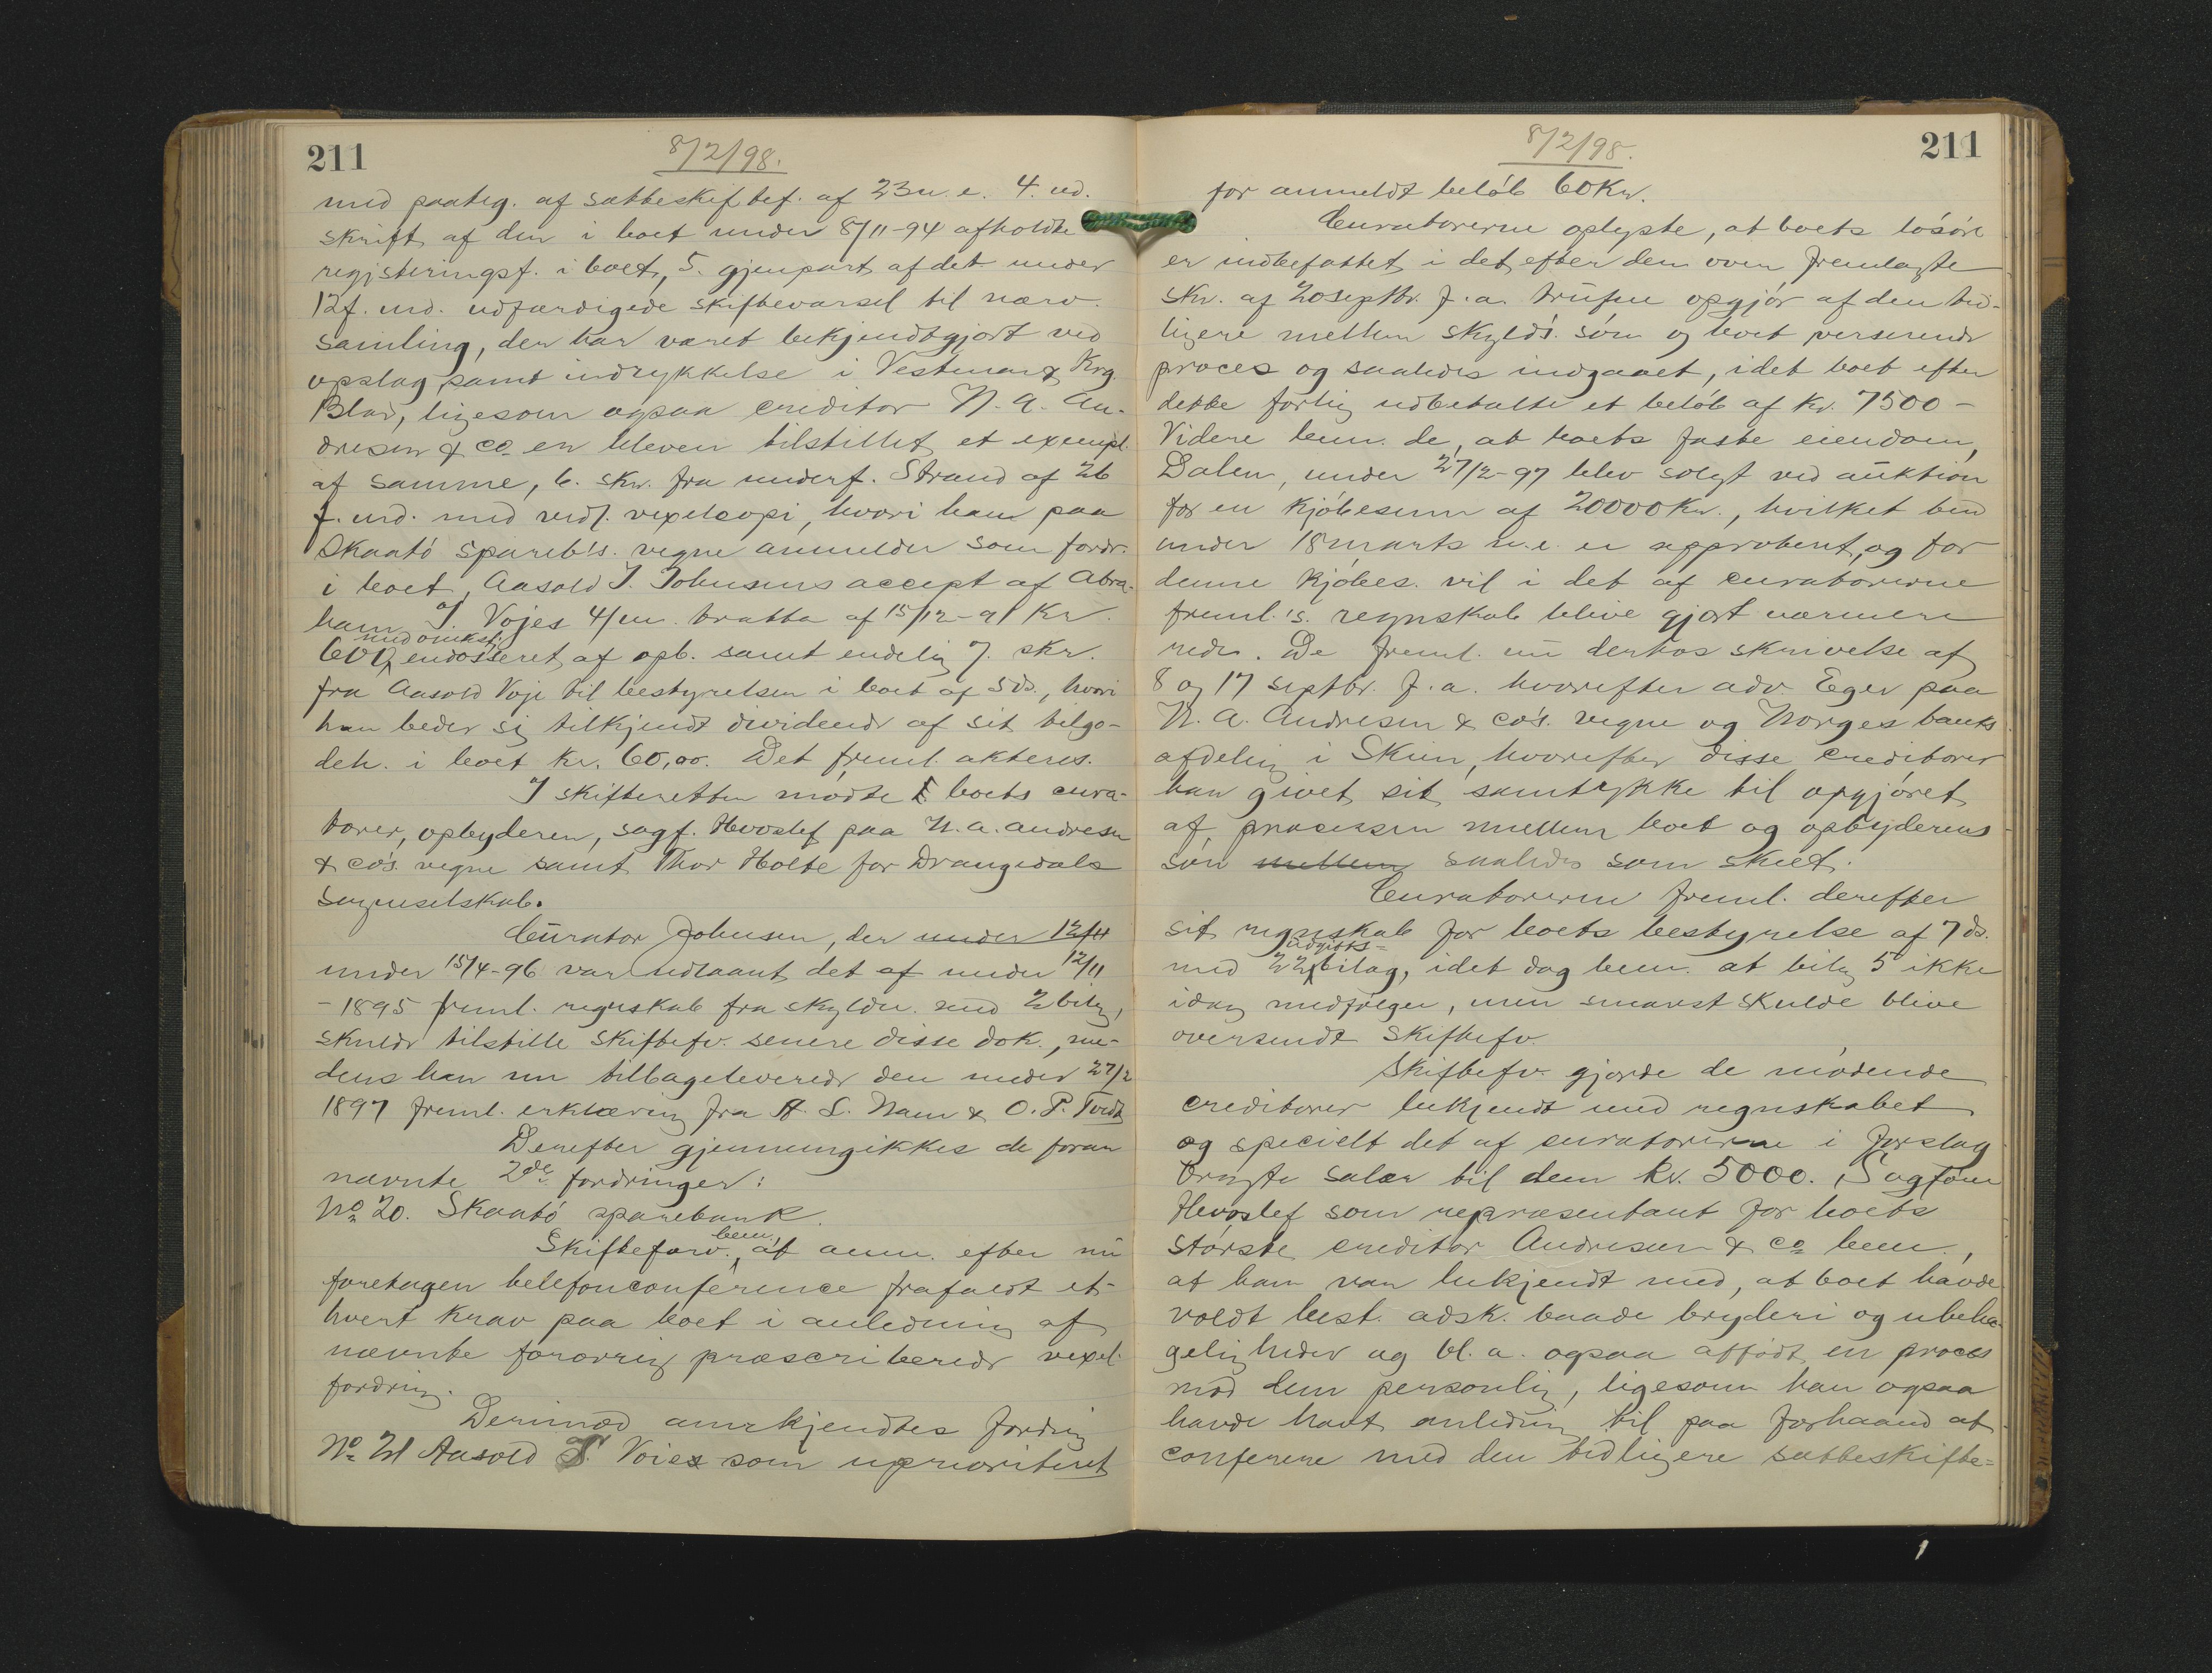 211
8/2/98.
med paateg. af sætteskiftef. af 23 n. e. 4. ud.
skrift af den i boet under 8/11-94 afholdte
registeringsf. i boet, 5. gjenpart af det under
12 f. md. udfærdigede skiftevarsel til nærv.
samling, der har været bekjendtgjort ved
opslag samt indrykkelse i Vestmar & Krg.
Blad, ligesom ogsaa creditor N. A. An-
dresen & Co er bleven tilstillet et exempl.
af samme, 6. skr. fra underf. Strand af 26
f. md. med vedl. vexelcopi, hvori han paa
Skaatö spareb's. vegne anmelder som fordr.
i boet Aasold T. Johnsens accept af Abra-
ham J. Vojes 4/m. tratta af 15/12-91 Kr.
600 med omkst. endosseret af opb. samt endelig 7. skr.
fra Aasold Voje til bestyrelsen i boet af 5 ds., hvori
han beder sig tilkjendt dividende af sit tilgo-
deh. i boet kr. 60,00. Det freml. akteres.
I skifteretten mödte boets cura-
torer, opbyderen, sagf. Hvoslef paa N. A. Andresen
& Co's. vegne samt Thor Holte for Drangedals
sogneselskab.
Curator Johnsen, der under 12/11
under 15/4-96 var udlaant det af under 12/11
-1895 freml. regnskab fra skyldn. med 2 bilag,
skulde tilstille skiftefv. senere disse dok., me-
dens han nu tilbageleverede den under 27/2
1897 freml. erklæring fra A. L. Næm & O. P. Tvedt
Derefter gjennemgikkes de foran
nævnte 2de fordringer:
No 20. Skaatö sparebank.
Skifteforv. bem., at anm. efter nu
foretagen telefonconference frafaldt et-
hvert krav paa boet i anledning af
nævnte forövrig præscriberede vexel-
fordring.
Derimod anerkjendtes fordring
No 21 Aasold T. Voies som uprioriteret
211
8/2/98.
for anmeldt belöb 60 Kr.
Curatorerne oplyste, at boets lösöre
er indbefattet i det efter den oven fremlagte
skr. af 20 septbr. f. a. trufne opgjör af den tid-
ligere mellem skyld's. sön og boet verserende
proces og saaledes indgaaet, idet boet efter
dette forlig udbetalte et belöb af kr. 7500 -
Videre bem. de, at boets faste eiendom,
Dalen, under 27/2-97 blev solgt ved auktion
for en kjöbesum af 20000 Kr., hvilket bud
under 18 marts n. e. er approbert, og for
denne kjöbes. vil i det af curatorerne
freml's. regnskab blive gjort nærmere
rede. De freml. nu derhos skrivelse af
8 og 17 septbr. f. a. hvorefter adv. Eger paa
N. A. Andresen & Co's. vegne og Norges banks
afdeling i Skien, hvorefter disse creditorer
har givet sit samtykke til opgjöret
af processen mellem boet og opbyderens
sön mellem saaledes som skeet.
Curatorerne freml. derefter
sit regnskab for boets bestyrelse af 7 ds.
med 22 udgifts= bilag, idet dog bem. at bilag 5 ikke
idag medfölger, men snarest skulde blive
oversendt skiftefv.
Skiftefv. gjorde de mödende
creditorer bekjendt med regnskabet
og specielt det af curatorerne i forslag
bragte salær til dem kr. 5000. Sagförer
Hvoslef som repræsentant for boets
störste creditor Andresen & Co bem.,
at han var bekjendt med, at boet havde
voldt best. adsk. baade bryderi og ubeha-
geligheder og bl. a. ogsaa affödt en proces
mod dem personlig, ligesom han ogsaa
havde havt anledning til paa forhaand at
conferere med den tidligere sætteskifte=